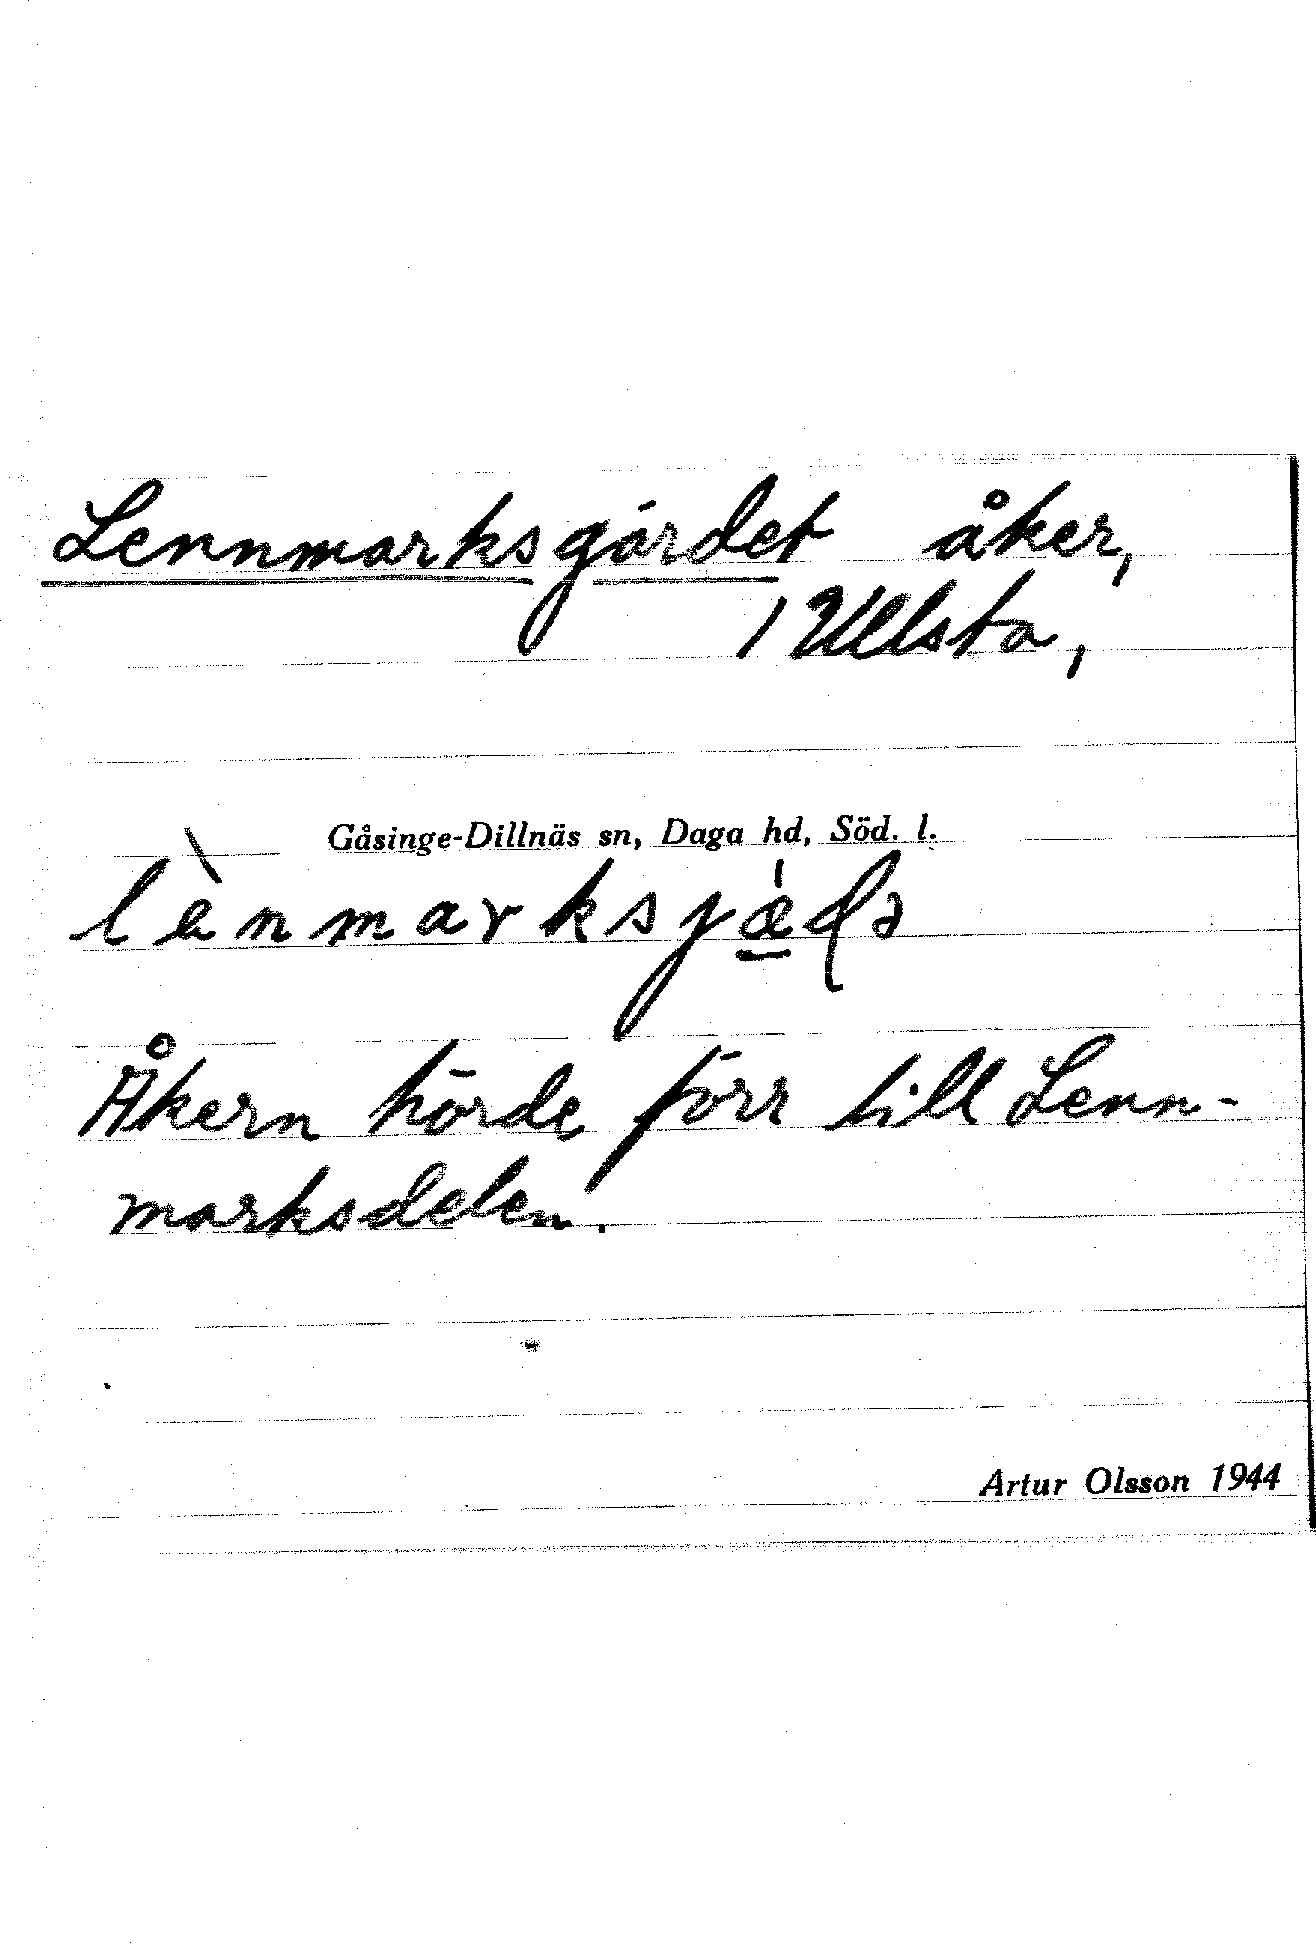 Lennmarksgärdet åker,
/ Ullsta,
Gåsinge-Dillnäs sn, Daga hd, Söd. l.
Åkern hörde förr till Lenn-
marksdelen.
Artur Olsson 1944